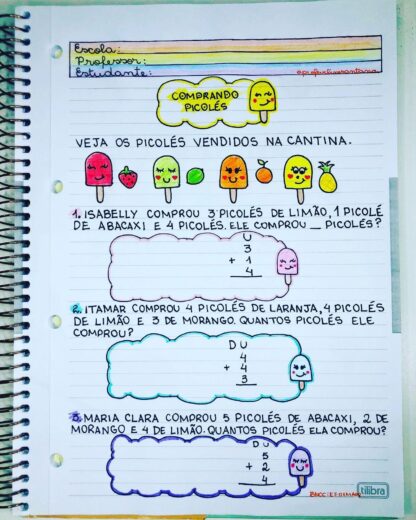 Escola:
Professor:
Estudante:
COMPRANDO
PICOLÉS
VEJA OS PICOLÉS VENDIDOS NA CANTINA.
1. ISABELLY COMPROU 3 PICOLÉS DE LIMÃO, 1 PICOLÉ
DE ABACAXI E 4 PICOLÉS. ELE COMPROU __ PICOLÉS?
U
3
+ 1
4
2. ITAMAR COMPROU 4 PICOLÉS DE LARANJA, 4 PICOLÉS
DE LIMÃO E 3 DE MORANGO. QUANTOS PICOLÉS ELE
COMPROU?
D U
4
+ 4
3
3. MARIA CLARA COMPROU 5 PICOLÉS DE ABACAXI, 2 DE
MORANGO E 4 DE LIMÃO. QUANTOS PICOLÉS ELA COMPROU?
D U
5
+ 2
4
tilibra